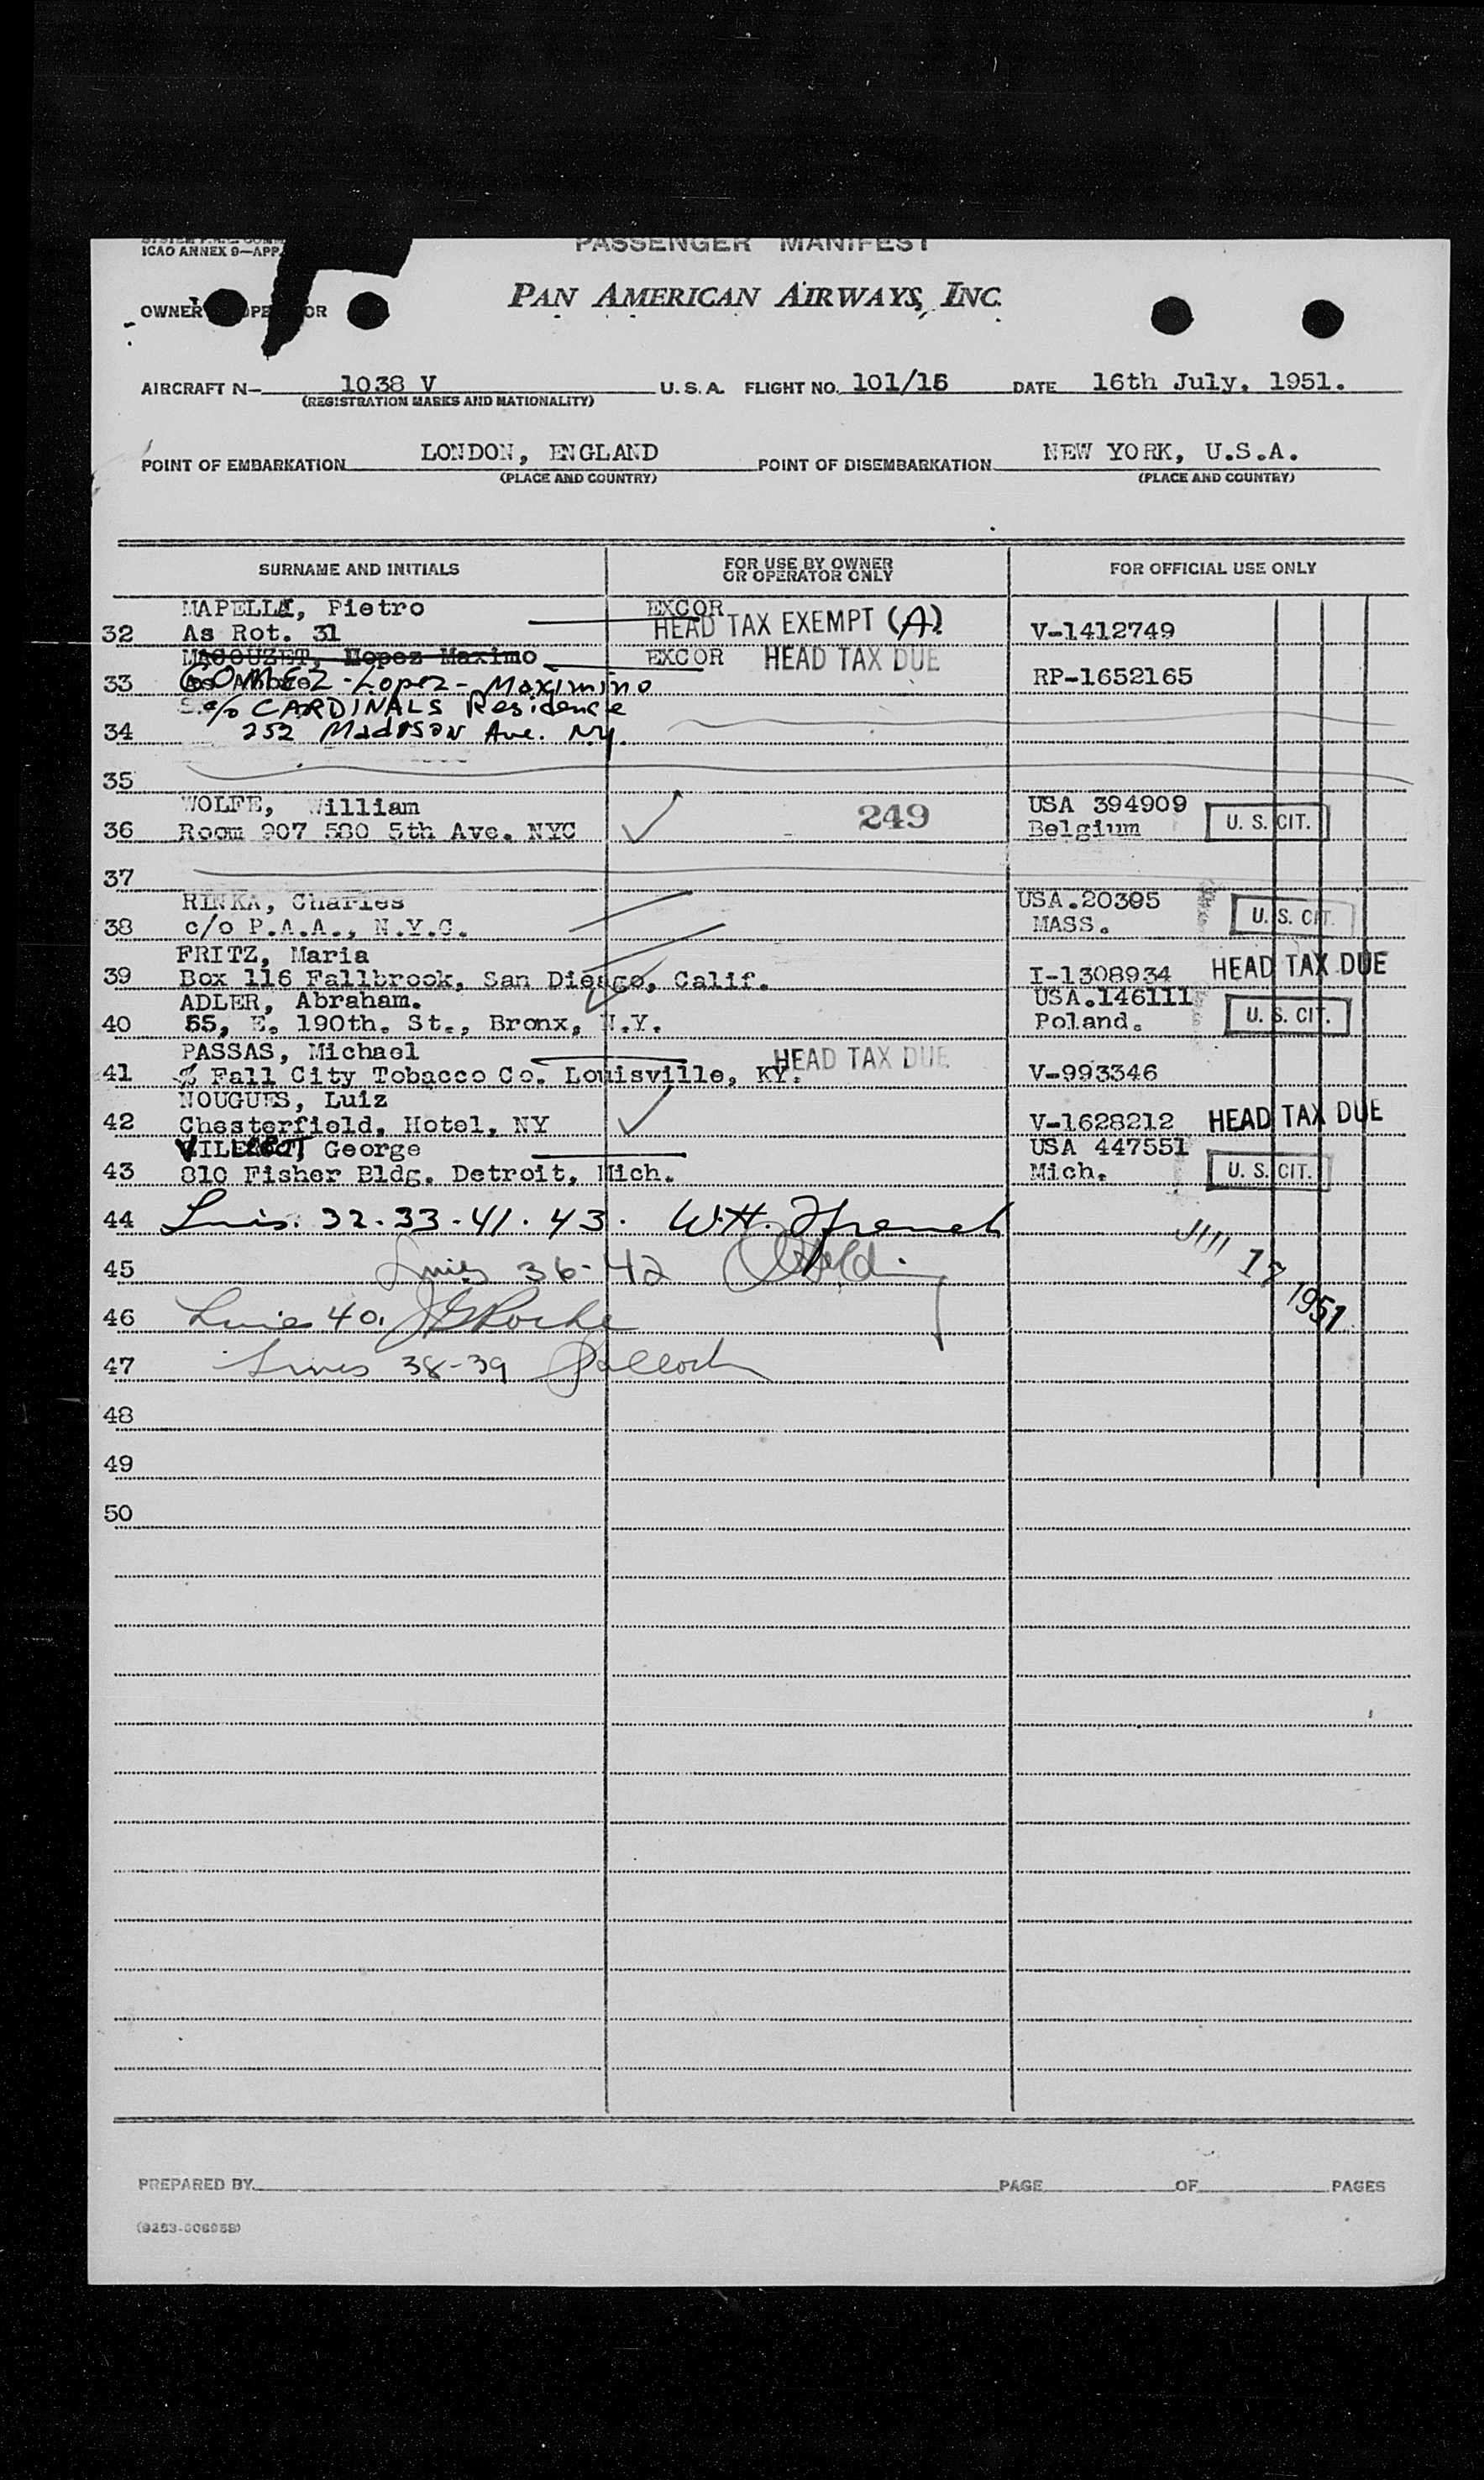 ICAO ANNEX 9—APP.
PASSENGER MANIFEST
PAN AMERICAN AIRWAYS, INC.
OWNER OPERATOR
AIRCRAFT N— 1038 V U.S.A. FLIGHT NO. 101/15 DATE 16th July, 1951.
(REGISTRATION MARKS AND NATIONALITY)
POINT OF EMBARKATION LONDON, ENGLAND POINT OF DISEMBARKATION NEW YORK, U.S.A.
(PLACE AND COUNTRY) (PLACE AND COUNTRY)
SURNAME AND INITIALS FOR USE BY OWNER OR OPERATOR ONLY FOR OFFICIAL USE ONLY
MAPELLI, Pietro EXCOR
32 As Rot. 31 HEAD TAX EXEMPT (A) V-1412749
Maximo EXCOR HEAD TAX DUE
33 GOMEZ-Lopez-Maximino RP-1652165
c/o CARDINALS Residence
34 252 Madison Ave. N.Y.
35
WOLFE, William 249 USA 394909
36 Room 907 580 5th Ave. NYC Belgium U. S. CIT.
37
RINKA, Charles USA.20395
38 c/o P.A.A., N.Y.C. MASS. U. S. CIT.
FRITZ, Maria
39 Box 116 Fallbrook, San Diego, Calif. I-1308934 HEAD TAX DUE
ADLER, Abraham. USA.146111
40 55, E. 190th. St., Bronx, N.Y. Poland. U. S. CIT.
PASSAS, Michael HEAD TAX DUE
41 % Fall City Tobacco Co. Louisville, KY. V-993346
NOUGUES, Luiz
42 Chesterfield, Hotel, NY V-1628212 HEAD TAX DUE
George USA 447551
43 810 Fisher Bldg. Detroit, Mich. Mich. U. S. CIT.
44 32-33-41-43. W.H. French
45 Lines 36-42
46 Line 40. J G Roche
47 Lines 38-39
JUL 17 1951
48
49
50
PREPARED BY PAGE OF PAGES